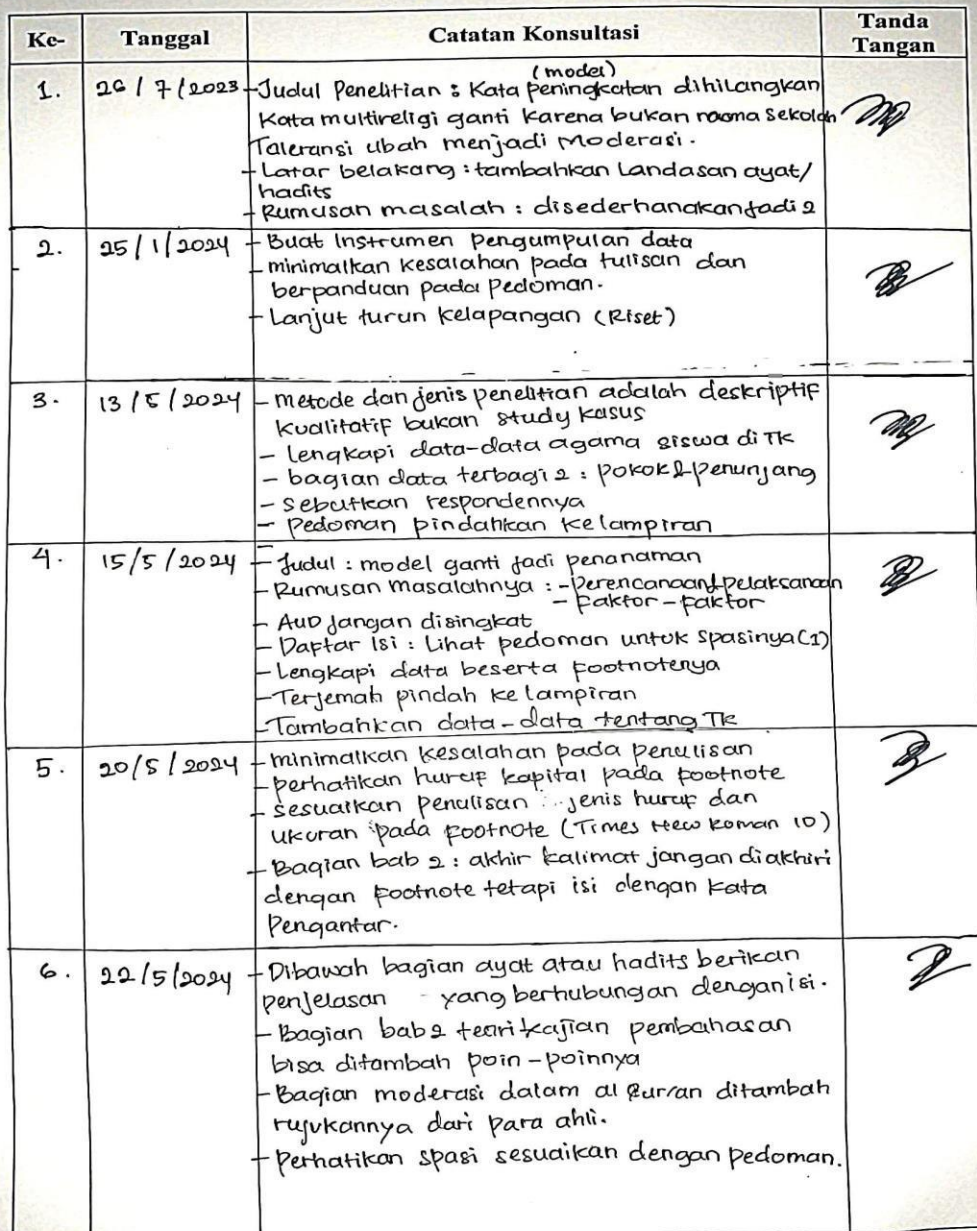 Ke- Tanggal Catatan Konsultasi Tanda Tangan
1. 26/7/2023 - Judul Penelitian : Kata peningkatan (model) dihilangkan
Kata multireligi ganti karena bukan nama Sekolah
Toleransi ubah menjadi Moderasi.
- Latar belakang : tambahkan Landasan ayat/
hadits
- Rumusan masalah : disederhanakan jadi 2
2. 25/1/2024 - Buat Instrumen pengumpulan data
- minimalkan kesalahan pada tulisan dan
berpanduan pada Pedoman.
- Lanjut turun kelapangan (Riset)
3. 13/5/2024 - metode dan jenis penelitian adalah deskriptif
kualitatif bukan study kasus
- lengkapi data-data agama siswa di TK
- bagian data terbagi 2 : pokok & penunjang
- Sebutkan respondennya
- Pedoman pindahkan kelampiran
4. 15/5/2024 - Judul : model ganti jadi penanaman
- Rumusan Masalahnya : - Perencanaan & pelaksanaan
- Faktor-faktor
- AUD jangan disingkat
- Daftar Isi : Lihat pedoman untuk spasinya (1)
- Lengkapi data beserta footnotenya
- Terjemah pindah ke lampiran
- Tambahkan data-data tentang TK
5. 20/5/2024 - minimalkan kesalahan pada penulisan
- perhatikan huruf kapital pada footnote
- sesuaikan penulisan jenis huruf dan
ukuran pada footnote (Times New Roman 10)
- Bagian bab 2 : akhir kalimat jangan diakhiri
dengan footnote tetapi isi dengan kata
Pengantar.
6. 22/5/2024 - Dibawah bagian ayat atau hadits berikan
penjelasan yang berhubungan dengan isi.
- Bagian bab 2 teori kajian pembahasan
bisa ditambah poin-poinnya
- Bagian moderasi dalam al Qur'an ditambah
rujukannya dari para ahli.
- Perhatikan spasi sesuaikan dengan pedoman.